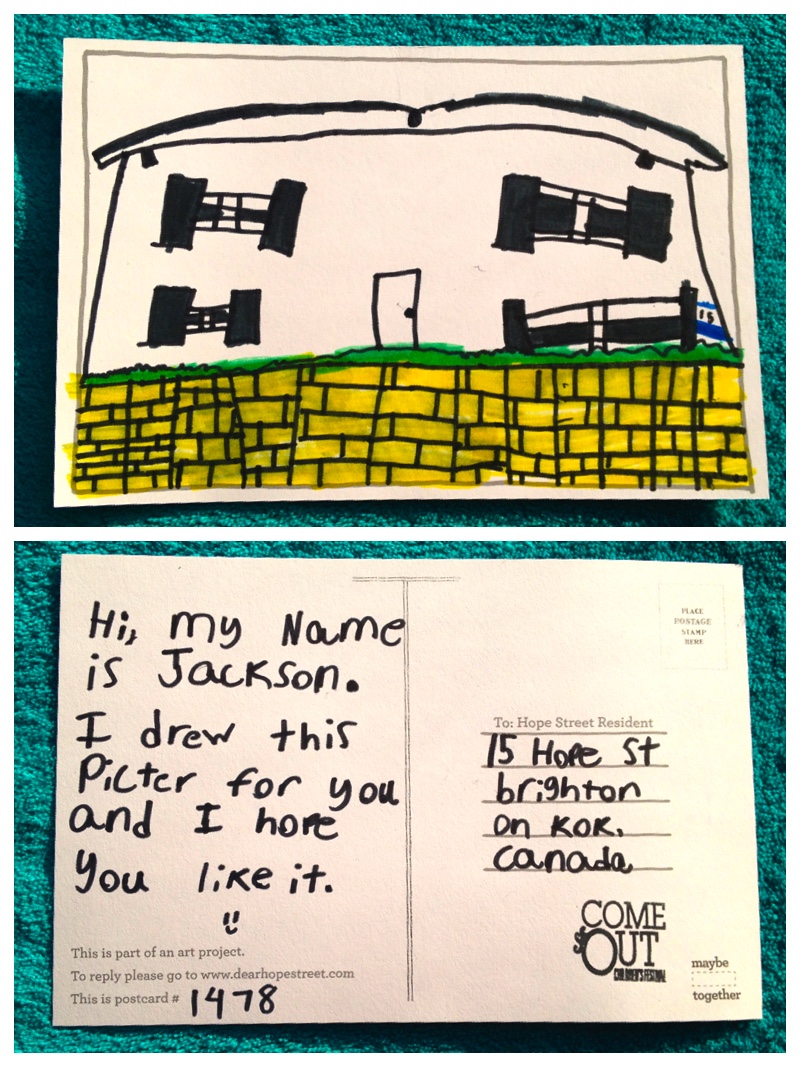 15
Hi, my Name
is Jackson.
I drew this
Picter for you
and I hope
you like it.
This is part of an art project.
To reply please go to www.dearhopestreet.com
This is postcard # 1478
PLACE
POSTAGE
STAMP
HERE
To: Hope Street Resident
15 Hope St
brighton
on KOK,
canada
COME
OUT
CHILDREN'S FESTIVAL
maybe
together